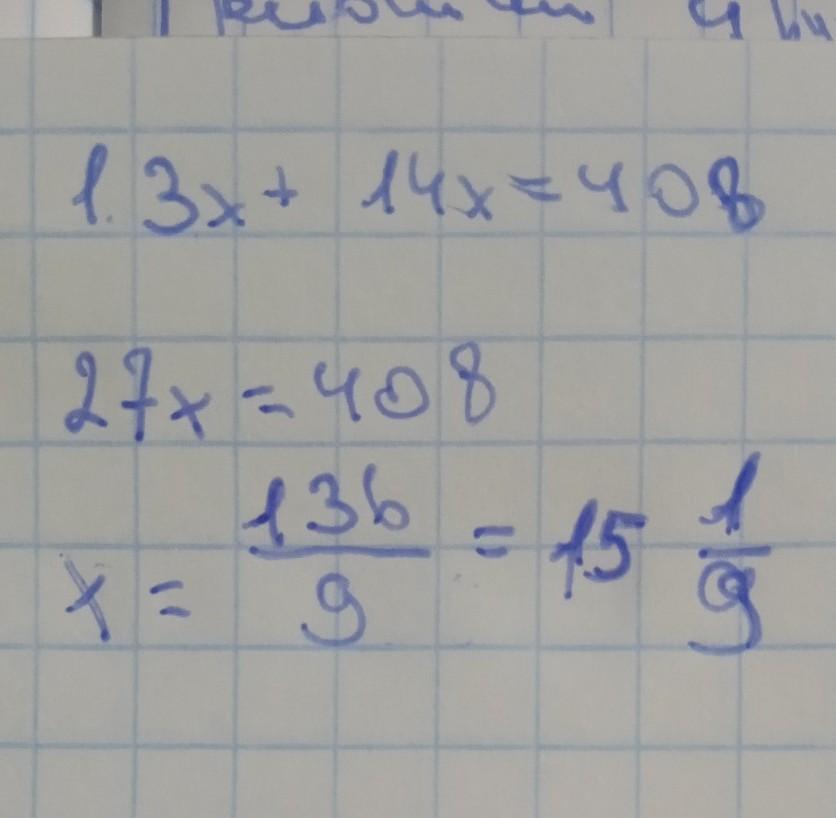 1.3x + 14x = 408
27x = 408
x = 136/9 = 15 1/9